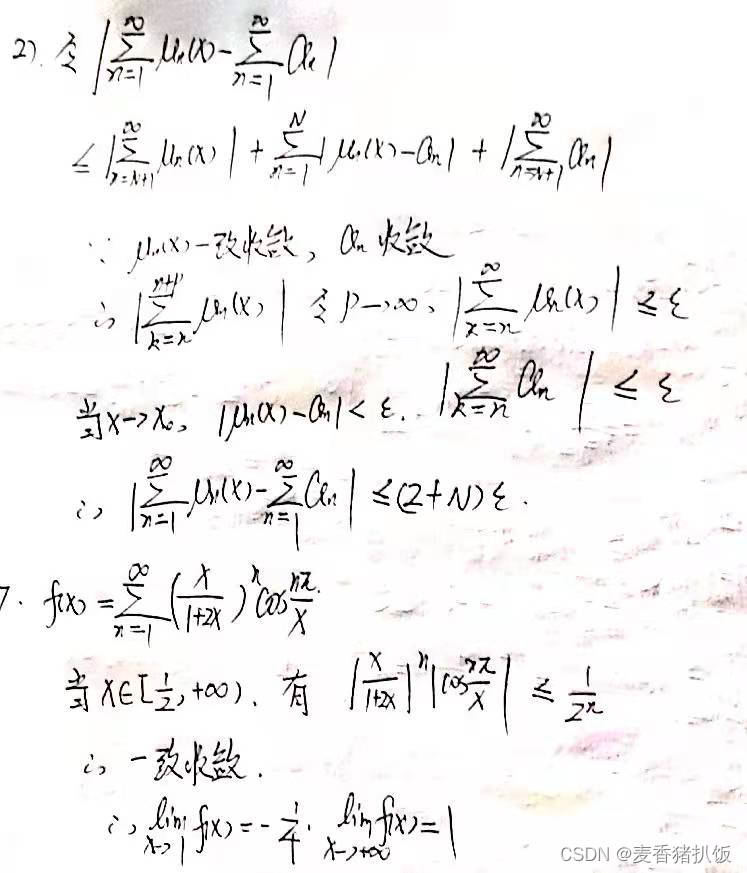 2). 令 |∑_{n=1}^{∞} μₙ(x) - ∑_{n=1}^{∞} aₙ|
≤ |∑_{n=N+1}^{∞} μₙ(x)| + ∑_{n=1}^{N} |μₙ(x) - aₙ| + |∑_{n=N+1}^{∞} aₙ|
∵ μₙ(x)一致收敛, aₙ 收敛
∴ |∑_{k=n}^{n+p} μₙ(x)| 令 p→∞, |∑_{k=n}^{∞} μₙ(x)| ≤ ε
当x→x₀, |μₙ(x) - aₙ| < ε. |∑_{k=n}^{∞} aₙ| ≤ ε
∴ |∑_{n=1}^{∞} μₙ(x) - ∑_{n=1}^{∞} aₙ| ≤ (2+N) ε.
7. f(x) = ∑_{n=1}^{∞} (x/(1+2x))ⁿ cos nπ/x
当 x∈[1/2, +∞). 有 |x/(1+2x)|ⁿ |cos nπ/x| ≤ 1/2ⁿ
∴ 一致收敛.
∴ lim_{x→1} f(x) = -1/4. lim_{x→+∞} f(x) = 1
CSDN @麦香猪扒饭